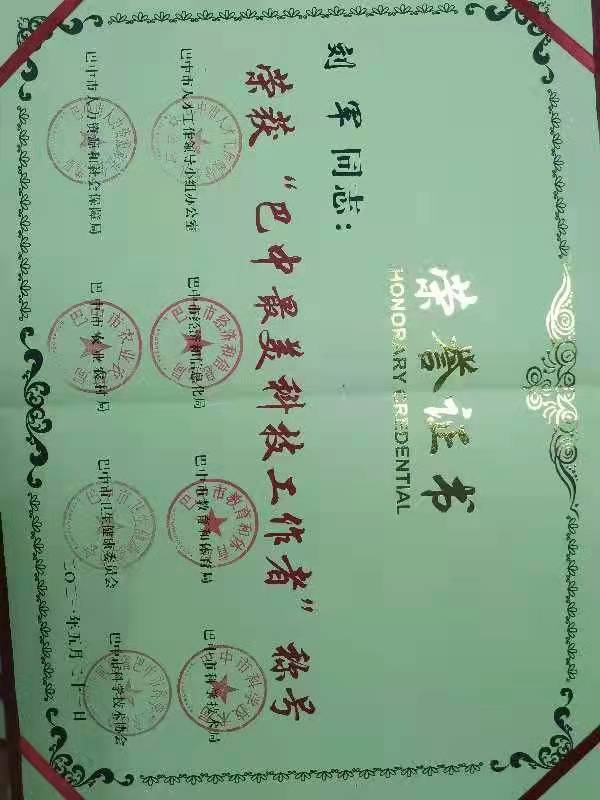 荣誉证书
HONORARY CREDENTIAL
刘军同志：
荣获“巴中最美科技工作者”称号
巴中市人才工作领导小组办公室 巴中市经济和信息化局 巴中市教育和体育局 巴中市科学技术局
巴中市人力资源和社会保障局 巴中市农业农村局 巴中市卫生健康委员会 巴中市科学技术协会
二〇二一年五月